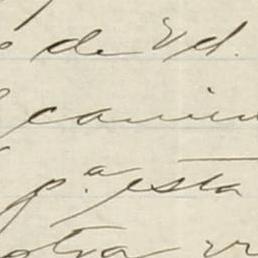 de Vd.
camin
pª esta
otra